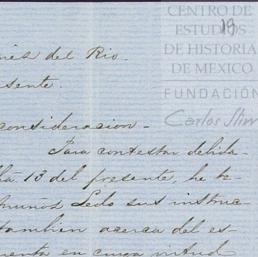 CENTRO DE
ESTUDIOS
DE HISTORIA
DE MEXICO
FUNDACIÓN
Carlos Slim
19
del Rio.
sente.
consideracion.
Para contestar debida
13 del presente, he
Muñoz Ledo sus instruc
tambien acerca del es
en cuya virtud